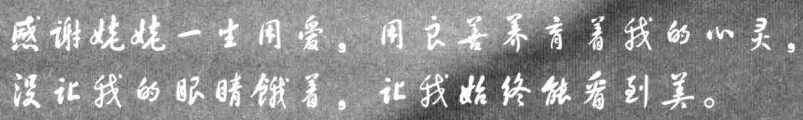 感谢姥姥一生用爱，用良善养育着我的心灵，
没让我的眼睛饿着，让我始终能看到美。